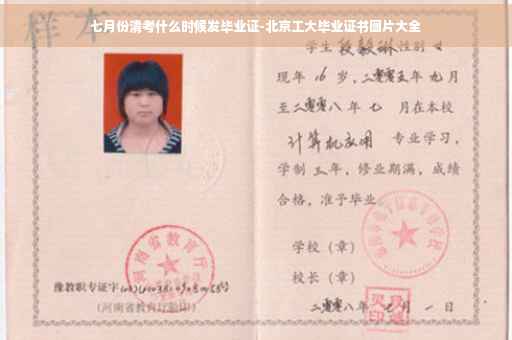 七月份清考什么时候发毕业证-北京工大毕业证书图片大全
样本
学生 段毅琳 性别 女
现年 16 岁，二零零五年 九月
至二零零八年 七 月在本校
计算机应用 专业学习，
学制 三年，修业期满，成绩
合格，准予毕业。
学校（章）
校长（章）
二零零八年 七月 一日
河南省教育厅
豫教职专证字
（河南省教育厅验印）